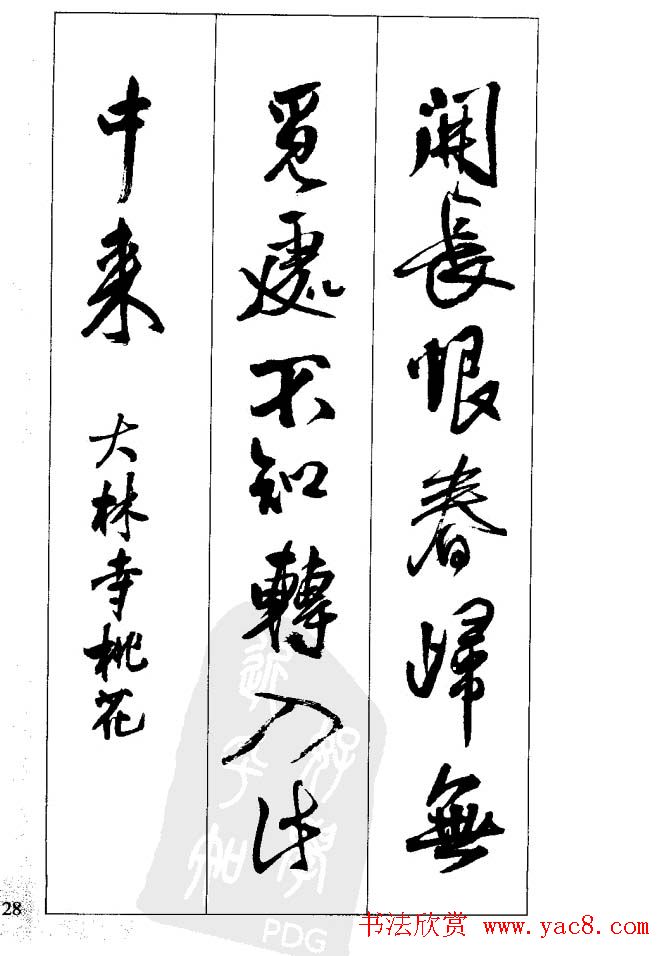 開長恨春歸無
覓處不知轉入此
中来
大林寺桃花
28
PDG
书法欣赏 www.yac8.com